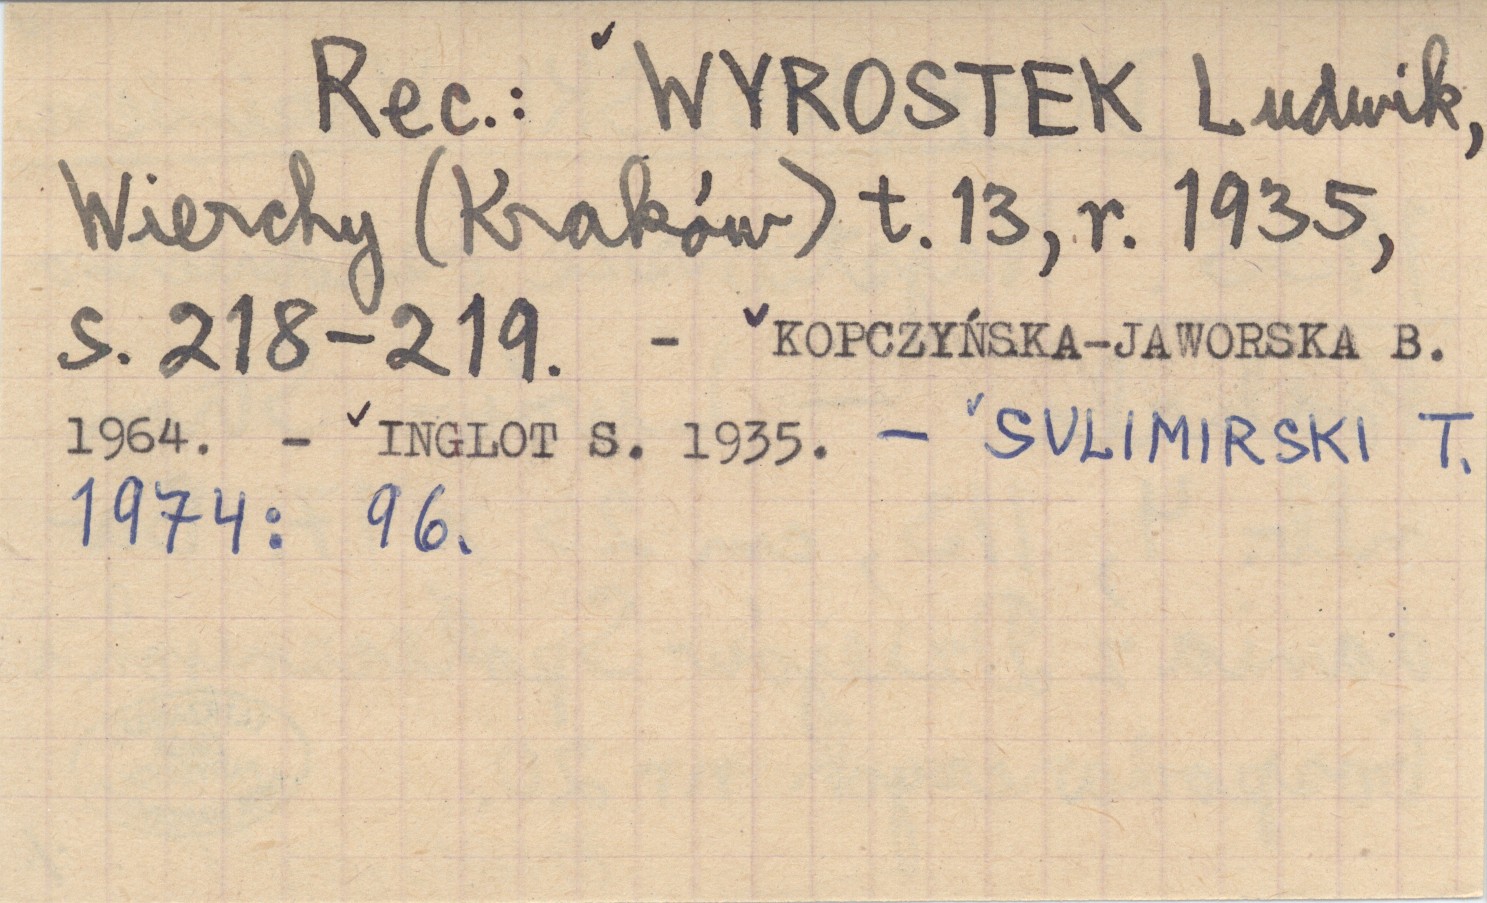 Rec.: ✓WYROSTEK Ludwik,
Wierchy (Kraków) t. 13, r. 1935,
s. 218-219. - ✓KOPCZYŃSKA-JAWORSKA B.
1964. - ✓INGLOT S. 1935. - ✓SULIMIRSKI T.
1974: 96.